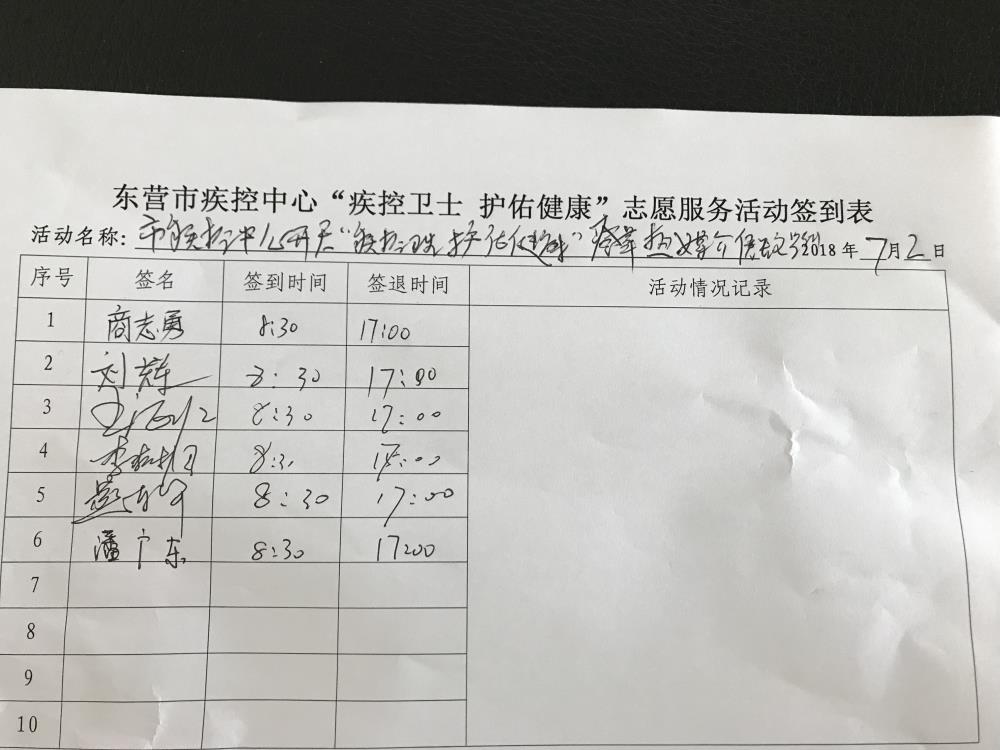 东营市疾控中心“疾控卫士 护佑健康”志愿服务活动签到表
活动名称：市疾控中心开展“疾控卫士护佑健康”登革热媒介 2018年7月2日
序号 签名 签到时间 签退时间 活动情况记录
1 商志勇 8:30 17:00
2 刘辉 8:30 17:00
3 8:30 17:00
4 8:30 17:00
5 8:30 17:00
6 潘广东 8:30 17:00
7
8
9
10